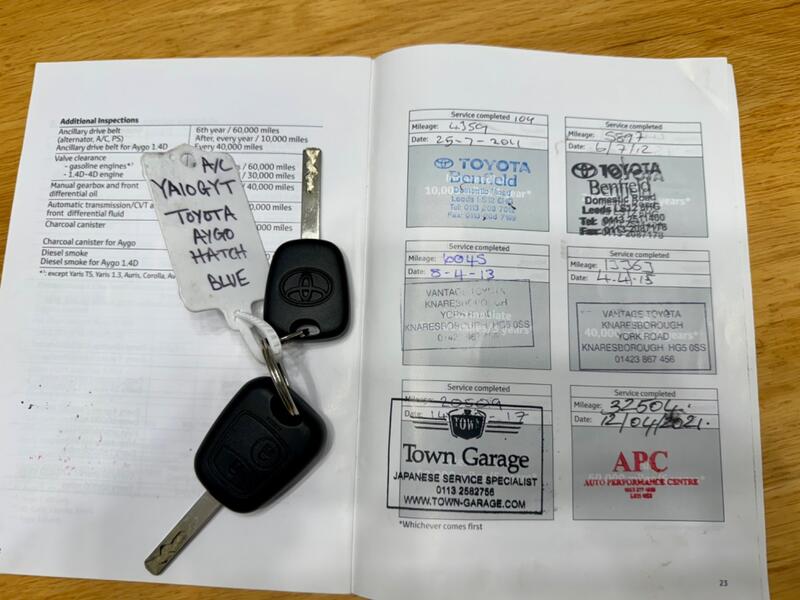 Additional Inspections
Ancillary drive belt
(alternator, A/C, PS)
Ancillary drive belt for Aygo 1.4D
6th year / 60,000 miles
After, every year / 10,000 miles
Every 40,000 miles
Valve clearance
- gasoline engines*¹
- 1.4D-4D engine
60,000 miles
30,000 miles
Manual gearbox and front
differential oil
40,000 miles
Automatic transmission/CVT a
front differential fluid
Charcoal canister
Charcoal canister for Aygo
Diesel smoke
Diesel smoke for Aygo 1.4D
*¹: except Yaris TS, Yaris 1.3, Auris, Corolla, Av
A/C
YA10GYT
TOYOTA
AYGO
HATCH
BLUE
Service completed
Mileage: 4359
Date: 25-7-2011
TOYOTA
Benfield
Domestic Road
Leeds LS12 6HG
Service completed
Mileage: 5897
Date: 6/7/12
TOYOTA
Benfield
Domestic Road
Leeds LS12 6HG
Service completed
Mileage: 6045
Date: 8-4-13
VANTAGE TOYOTA
KNARESBOROUGH
YORK ROAD
KNARESBOROUGH HG5 0SS
Service completed
Mileage:
Date: 4.4.15
VANTAGE TOYOTA
KNARESBOROUGH
YORK ROAD
KNARESBOROUGH HG5 0SS
01423 867 456
Service completed
Mileage: 20509
Date: 17
TOWN
Town Garage
JAPANESE SERVICE SPECIALIST
0113 2582756
WWW.TOWN-GARAGE.COM
Service completed
Mileage: 32504.
Date: 12/04/2021.
APC
AUTO PERFORMANCE CENTRE
*Whichever comes first
23